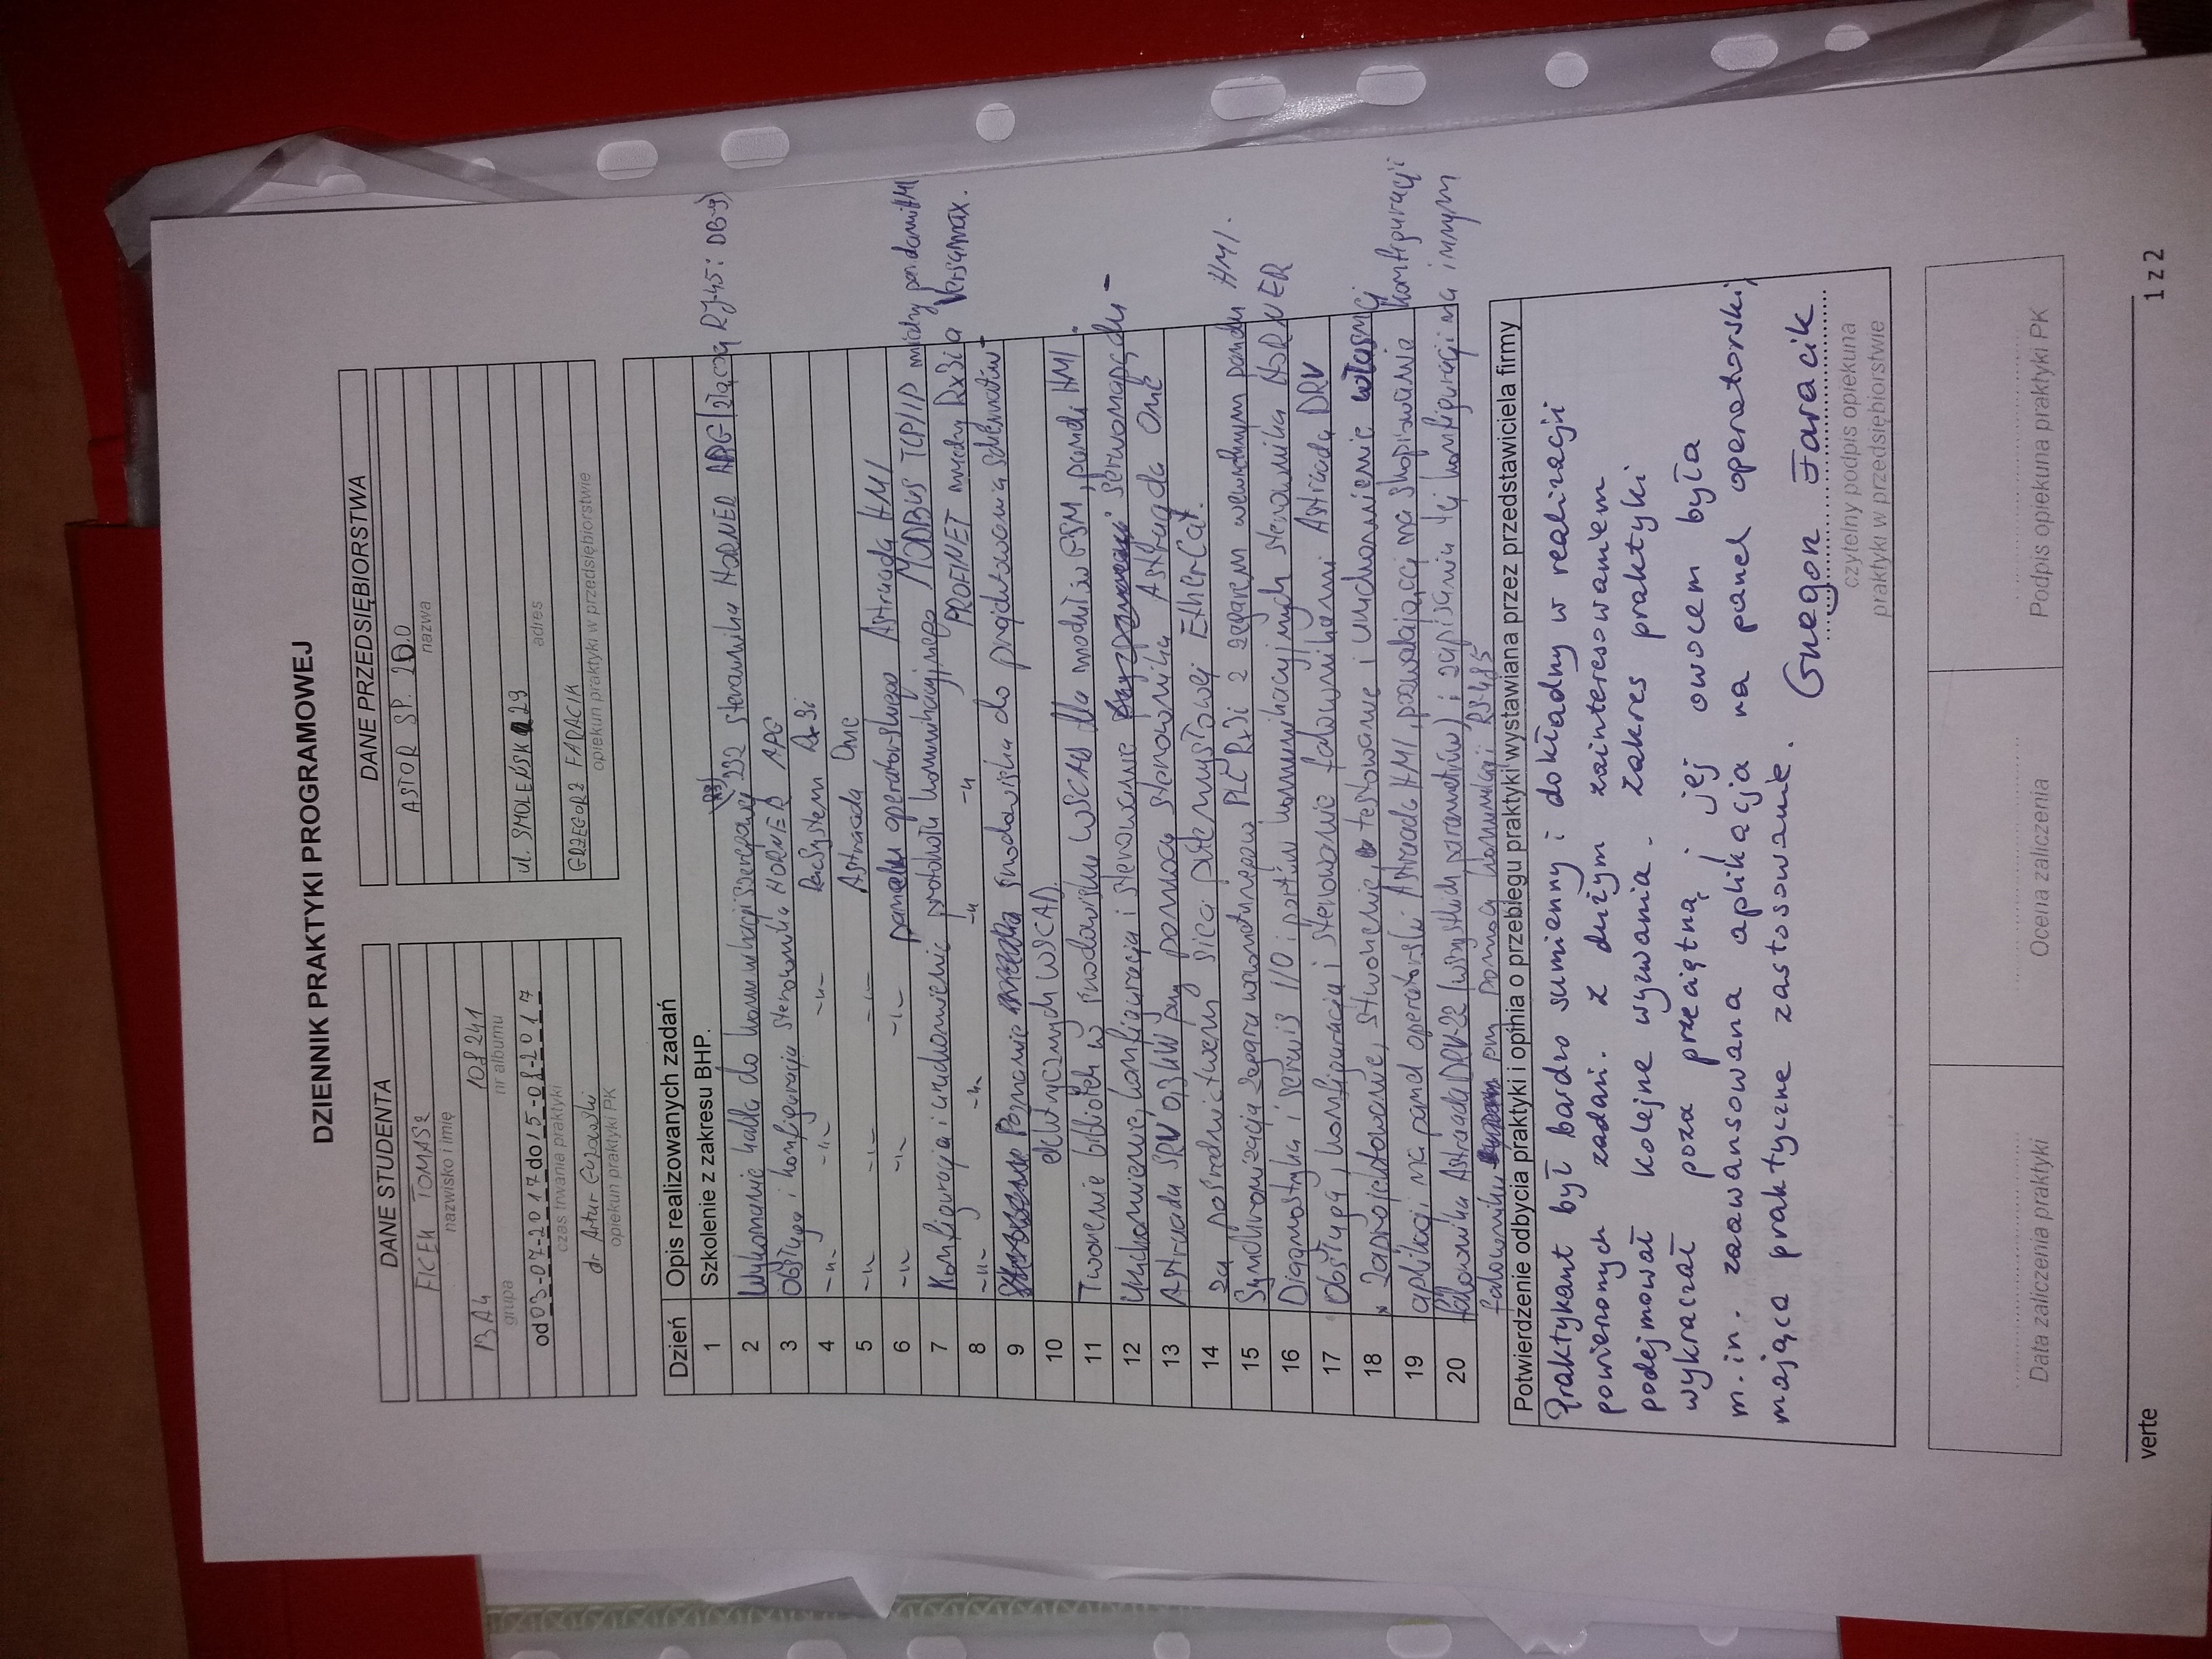 DZIENNIK PRAKTYKI PROGRAMOWEJ
DANE STUDENTA
FICEK TOMASZ
nazwisko i imię
13A4 108241
grupa nr albumu
od 03-07-2017 do 15-08-2017
czas trwania praktyki
dr Artur Guzowski
opiekun praktyki PK
DANE PRZEDSIĘBIORSTWA
ASTOR SP. ZO.O
nazwa
ul. SMOLEŃSK 29
adres
GRZEGORZ FARACIK
opiekun praktyki w przedsiębiorstwie
Dzień Opis realizowanych zadań
1 Szkolenie z zakresu BHP.
2 Wykonanie kabla do komunikacji szeregowej (RS) 232 sterownika HORNER APG (złącza RJ-45 i DB-9)
3 Obsługa i konfiguracja sterownika HORNER APG
4 -〃- -〃- -〃- PacSystem Rx3i
5 -〃- -〃- -〃- Astraada One
6 -〃- -〃- -〃- panelu operatorskiego Astraada HMI
7 Konfiguracja i uruchomienie protokołu komunikacyjnego MODBUS TCP/IP między panelami HMI
8 -〃- -〃- -〃- -〃- PROFINET między Rx3i a Versamax.
9 Poznanie środowiska do projektowania schematów
10 elektrycznych WSCAD.
11 Tworzenie bibliotek w środowisku WSCAD dla modułów GSM, paneli HMI.
12 Uruchomienie, konfiguracja i sterowanie serwonapędu -
13 Astraada SRV 0,3 kW przy pomocy sterownika Astraada One
14 za pośrednictwem sieci przemysłowej EtherCat.
15 Synchronizacja zegara wewnętrznego PLC Rx3i z zegarem wewnętrznym panelu HMI.
16 Diagnostyka i serwis I/O i portów komunikacyjnych sterownika HORNER
17 Obsługa, konfiguracja i sterowanie falownikami Astraada DRV
18 Zaprojektowanie, stworzenie, testowanie i uruchomienie własnej
19 aplikacji na panel operatorski Astraada HMI, pozwalającej na skopiowanie konfiguracji
20 falownika Astraada DRV-22 (wszystkich parametrów) i zapisania tej konfiguracji na innym
falowniku przy pomocy komunikacji RS-485
Potwierdzenie odbycia praktyki i opinia o przebiegu praktyki wystawiana przez przedstawiciela firmy
Praktykant był bardzo sumienny i dokładny w realizacji
powierzonych zadań. Z dużym zainteresowaniem
podejmował kolejne wyzwania. Zakres praktyki
wykraczał poza przeciętną i jej owocem była
m.in. zaawansowana aplikacja na panel operatorski,
mająca praktyczne zastosowanie.
Grzegorz Faracik
czytelny podpis opiekuna
praktyki w przedsiębiorstwie
Data zaliczenia praktyki Ocena zaliczenia Podpis opiekuna praktyki PK
verte 1 z 2